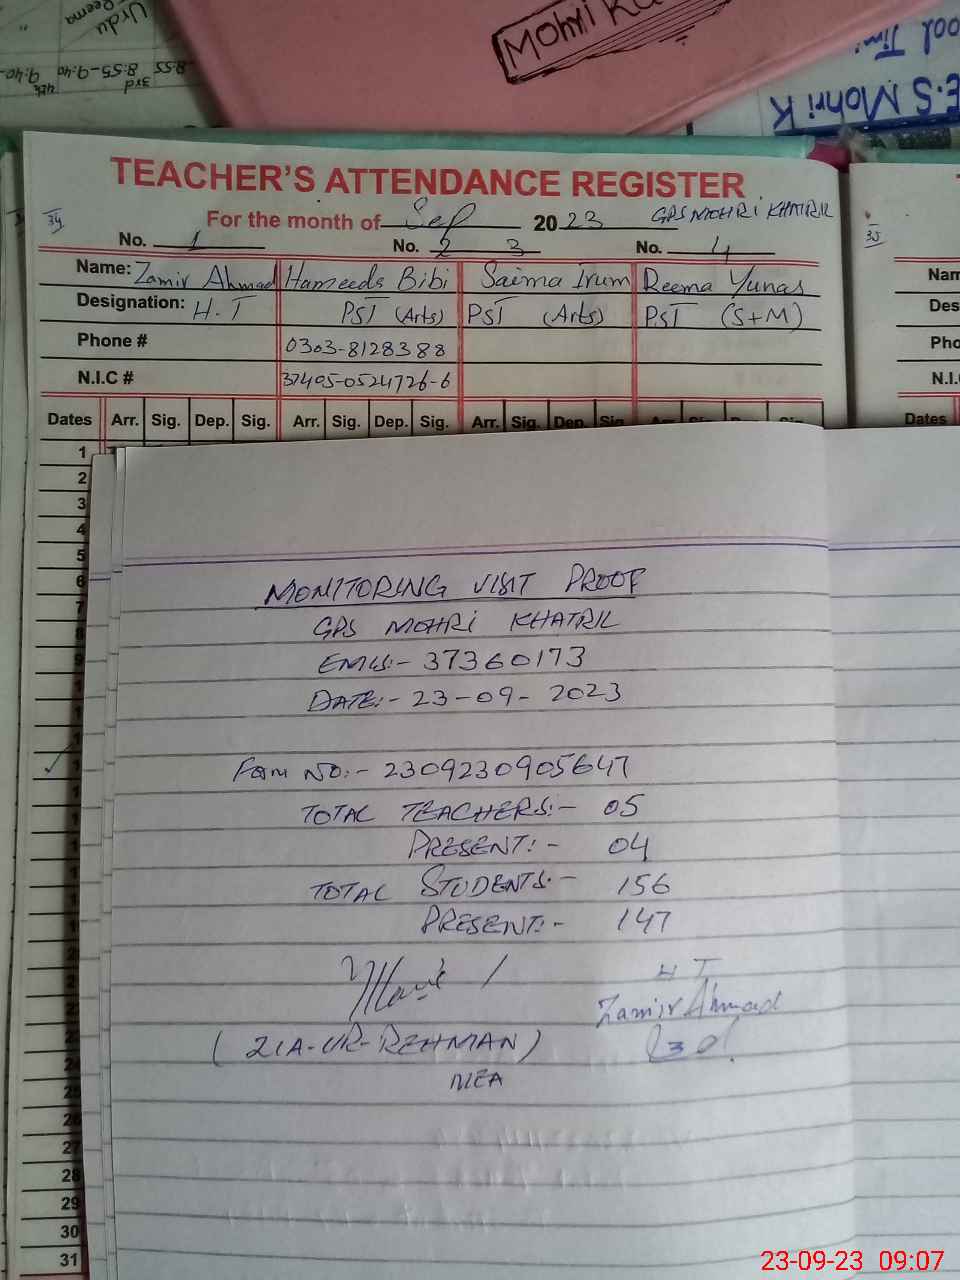 Urdu
Reema
8:55 8:55-9:40 9:40-
3rd 4th
Mohri Kh
ool Timi
E.S Mohri K
TEACHER'S ATTENDANCE REGISTER
34
For the month of Sep 2023 GPS MOHRI KHATRIL
35
No. 1 No. 2 3 No. 4
Name: Zamir Ahmad Hameeda Bibi Saima Irum Reema Yunas
Nam
Designation: H.T PST (Arts) PST (Arts) PST (S+M)
Des
Phone # 0303-8128388
Pho
N.I.C # 37405-0524726-6
N.I.
Dates Arr. Sig. Dep. Sig. Arr. Sig. Dep. Sig. Arr. Sig. Dep. Sig. Arr. Sig. Dep. Sig.
Dates
1
2
3
4
5
6
7
8
9
MONITORING VISIT PROOF
GPS MOHRI KHATRIL
EMIS:- 37360173
DATE:- 23-09-2023
Form NO:- 2309230905647
TOTAL TEACHERS:- 05
PRESENT:- 04
TOTAL STUDENTS:- 156
PRESENT:- 147
H T
Zamir Ahmad
(ZIA-UR-REHMAN)
MEA
24
25
26
27
28
29
30
31
23-09-23 09:07